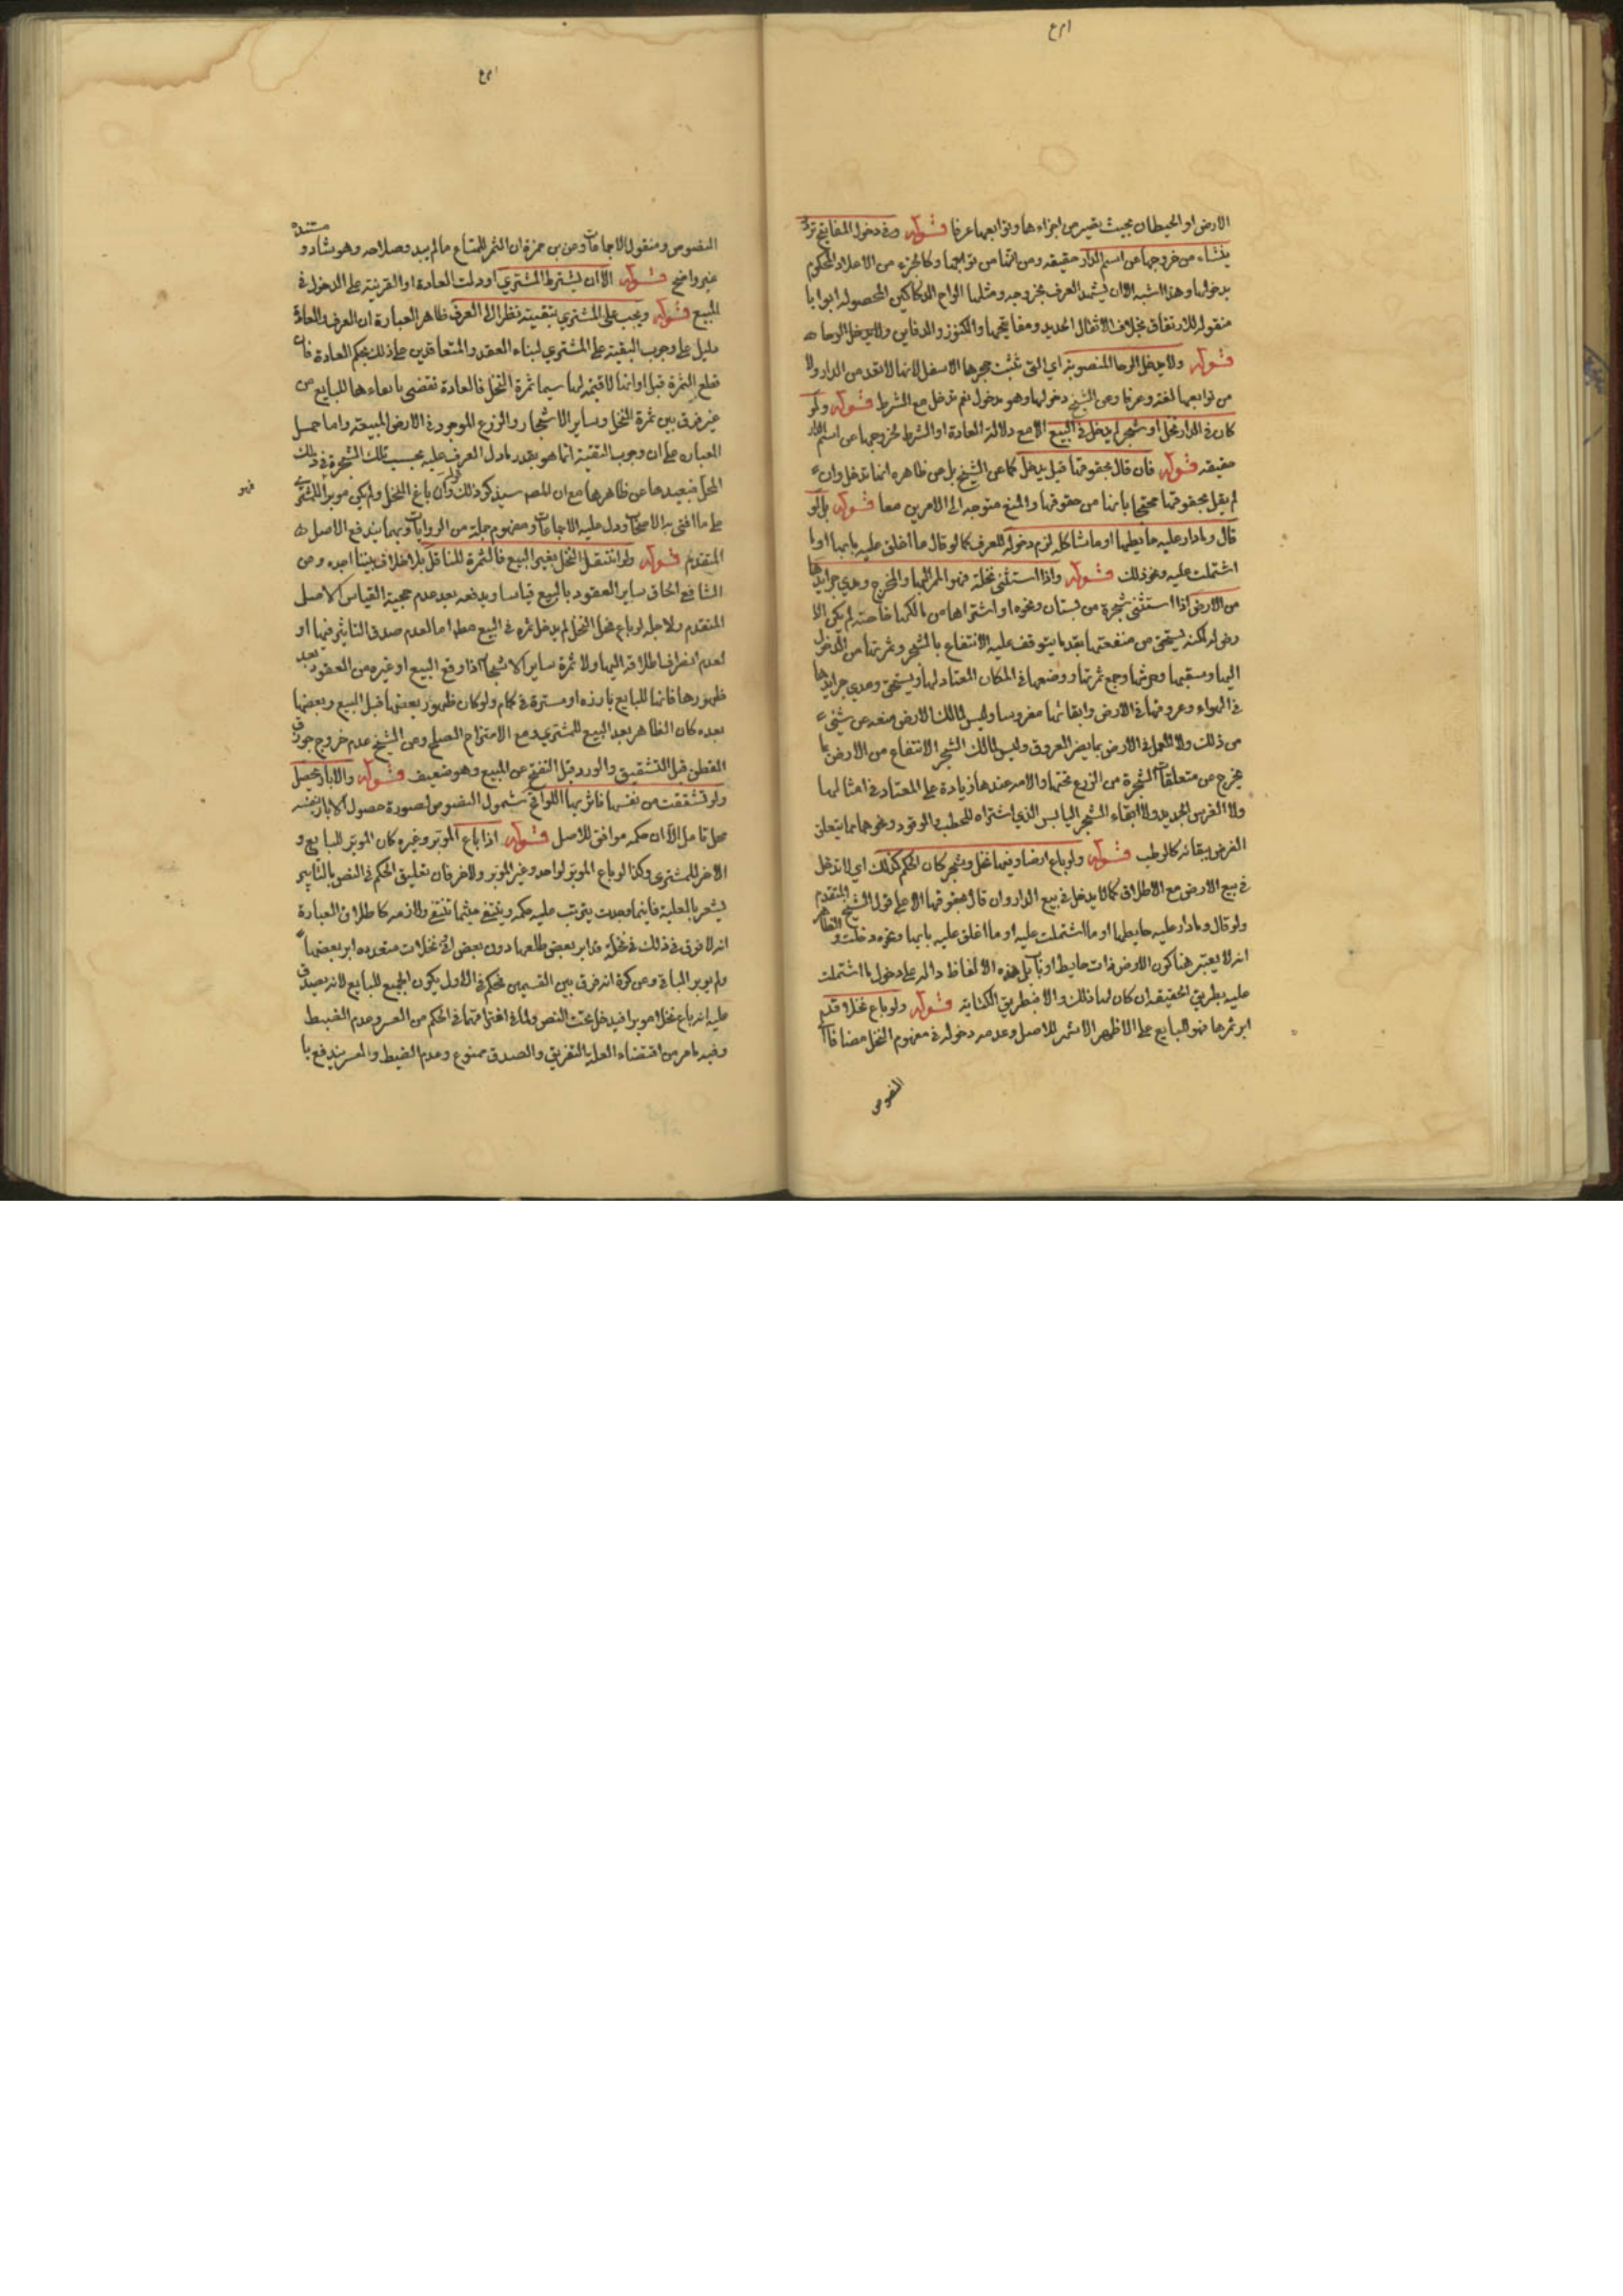 الارض او الحيطان بحيث يصير من اجزاءها وتوابعها عرفا قوله وفي دخول المفاتيح تردد
ينشاء من خروجها عن اسم الدار حقيقه ومن انها من توابعها وكالجزء من الاغلاق المحكوم
بدخولها وهذا اشبه الا ان يشهد العرف بخروجه ومثلها الواح الدكاكين المجعوله ابوابا
منقوله للارتفاق بخلاف الاقفال الحديد ومفاتيحها والكنوز والدفاين ولا يدخل الرحا
قوله ولا يدخل الرحا المنصوبة اي التي تثبت حجرها الاسفل لانها لا تعد من الدار ولا
من توابعها لغة وعرفا وعن الشيخ دخولها وهو مدخول نعم تدخل مع الشرط قوله ولو
كان في الدار نخل او شجر لم يدخل في البيع الا مع دلالة العادة او الشرط لخروجها عن اسم الدار
حقيقه قوله فان قال بحقوقها قيل يدخل كما عن الشيخ بل عن ظاهره انها تدخل وان
لم يقل بحقوقها محتجا بانها من حقوقها والمنع متوجه الى الامرين معا قوله بل لو
قال وما دار عليه حايطها او ما شاكله لزم دخوله للعرف كما لو قال ما اغلق عليه بابها او ما
اشتملت عليه ونحو ذلك قوله واذا استثنى نخلة فهو الممر اليها والمخرج ومدي جرايدها
من الارض اذا استثنى شجرة من بستان ونحوه او اشتراها من مالكها خاصة لم يكن الا
دخوله لكنه يستحق من منفعتها بقدر ما يتوقف عليه الانتفاع بالشجر وثمرتها من الدخول
اليها وسقيها وحرثها وجمع ثمرتها ووضعها في المكان المعتاد لها ويستحق ومدي جرايدها
في الهواء وعروقها في الارض وابقائها مغروسا وليس لمالك الارض منعه عن شيء
من ذلك ولا العمل في الارض بما يضر العروق وليس لمالك الشجر الانتفاع من الارض بما
يخرج من متعلقات الشجرة من الزرع تحتها والامر عندها زيادة على المعتاد في امثالها
ولا الغرس الجديد ولا ابقاء الشجر اليابس الذي اشتراه للحطب والوقود ونحوهما مما يتعلق
الغرض ببقائه كالرطب قوله ولو باع ارضا وفيها نخل وشجر كان الحكم كذلك اي لا تدخل
في بيع الارض مع الاطلاق كما لا يدخل في بيع الدار وان قال بحقوقها الا على قول الشيخ المتقدم
ولو قال وما دار عليه حايطها او ما اشتملت عليه او ما اغلق عليه بابها ونحوه دخلت والظاهر
انه لا يعتبر هنا كون الارض ذات حايط او باب بل هذه الالفاظ داله على دخول ما اشتملت
عليه بطريق الحقيقه ان كان لها ذلك والا فبطريق الكناية قوله ولو باع نخلا قد
ابر ثمرها فهو للبايع على الاظهر الاشهر للاصل وعدمه دخوله في مفهوم النخل مضافا الى
النصوص
النصوص ومنقول الاجماعات وعن بن حمزة ان الثمر للمبتاع ما لم يبد صلاحه وهو شاذ و مستنده
غير واضح قوله الا ان يشترط المشتري او دلت العادة او القرينة على الدخول في
المبيع قوله ويجب على المشتري تبقيته نظرا الى العرف ظاهر العبارة ان العرف والعادة
دليل على وجوب التبقية على المشتري لبناء العقد والمتعاقدين على ذلك بحكم العادة فان
قطع الثمرة قبل اوانها لا قيمه لها سيما ثمرة النخل فالعادة تقتضي بابقاءها للبايع من
غير فرق بين ثمرة النخل وساير الاشجار والزرع الموجود في الارض المبيعة واما حمل
العباره على ان وجوب التبقية انما هو بقدر ما دل العرف عليه بحسب تلك الشجرة في ذلك
المحل فبعيد ها عن ظاهرها مع ان المصـ سيذكر ذلك قوله وان باع النخل ولم يكن موبرا للمشتري فهو
على ما افتى به الاصحاب ودل عليه الاجماعات ومفهوم جملة من الروايات وبهما يندفع الاصل
المتقدم قوله ولو انتقل النخل بغير البيع فالثمرة للناقل بلا خلاف بيننا اجده وعن
الشافعي الحاق ساير العقود بالبيع قياسا ويدفعه بعد عدم حجية القياس كالاصل
المتقدم ولاجله لو باع فحل النخل لم يدخل ثمره في البيع مطه اما لعدم صدق التابير فيها او
لعدم انصراف اطلاقه اليها ولا ثمرة ساير الاشجار اذا وقع البيع او غيره من العقود بعد
ظهورها فانها للبايع بارزه او مستترة في كمام ولو كان ظهور بعضها قبل البيع وبعضها
بعده كان الظاهر بعد البيع للمشتري ومع الامتزاج الصلح وعن الشيخ عدم خروج جوزق
القطن قبل التشقيق والورد قبل التفتح عن المبيع وهو ضعيف قوله والابار يحصل
ولو تشققت من نفسها فاثر بها اللواقح شمول النصوص لصورة حصول الابار بنفسه
محل تامل الا ان حكمه موافق للاصل قوله اذا باع الموبر وغيره كان الموبر للبايع و
الاخر للمشتري وكذا لو باع الموبر لواحد وغير الموبر ولاخر فان تعليق الحكم في النص بالتابير
يشعر بالعلية فاينما وجدت يترتب عليه حكمه وينتفى حيثما تنتفى ولازمه كاطلاق العبارة
انه لا فرق في ذلك في نخلة قد ابر بعض طلعها دون بعض او نخلات متعدده ابر بعضها
ولم يوبر الباقي وعن كرة انه فرق بين القسمين فحكم في الاول بكون الجميع للبايع لانه يصدق
عليه انه باع نخلا موبرا فيدخل تحت النص ولما في افتراقهما في الحكم من العسر وعدم الضبط
وفيه ما مر من اقتضاء العلية التفريق والصدق ممنوع وعدم الضبط والعسر يندفع با